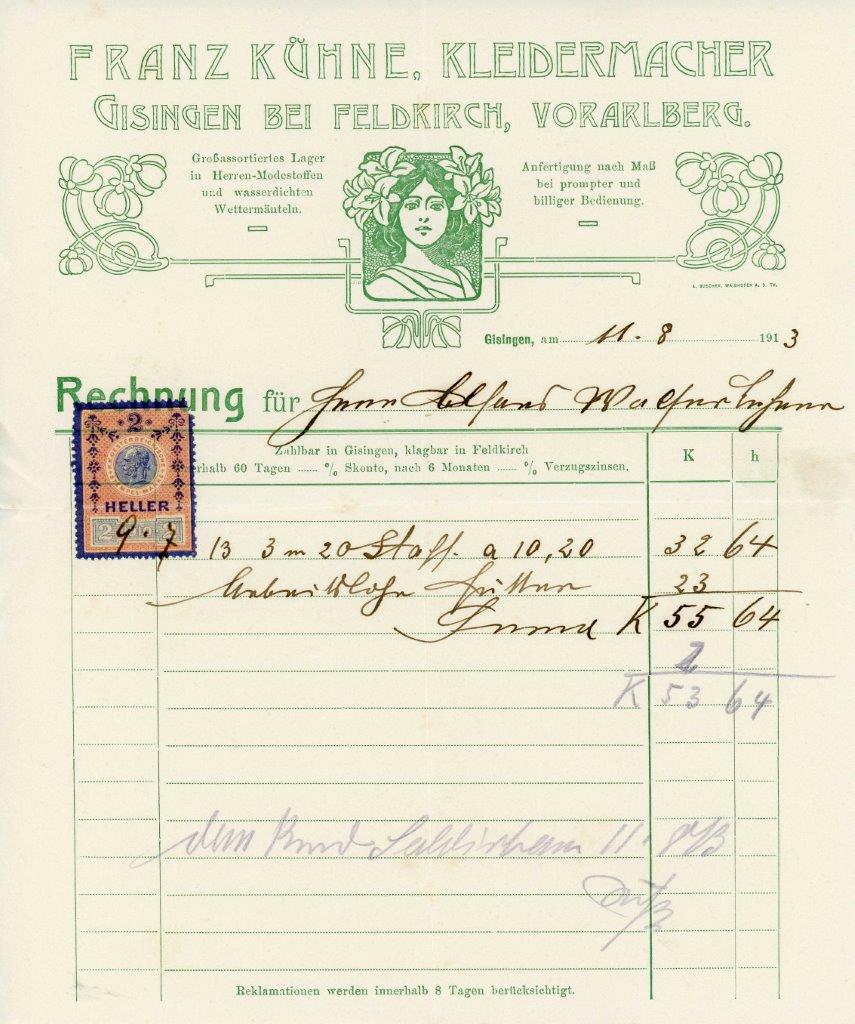 FRANZ KÜHNE, KLEIDERMACHER
GISINGEN BEI FELDKIRCH, VORARLBERG.
Großassortiertes Lager
in Herren-Modestoffen
und wasserdichten
Wettermänteln.
Anfertigung nach Maß
bei prompter und
billiger Bedienung.
Gisingen, am 11. 8 1913
Rechnung für Herrn
Zahlbar in Gisingen, klagbar in Feldkirch
erhalb 60 Tagen ...... % Skonto, nach 6 Monaten ...... % Verzugszinsen.
K h
2
HELLER
2 2
9. 7 13 3 m 20 Stoff. a 10,20 32 64
Arbeitslohn Futter 23
Suma K 55 64
2
K 53 64
11. 8/13
Reklamationen werden innerhalb 8 Tagen berücksichtigt.